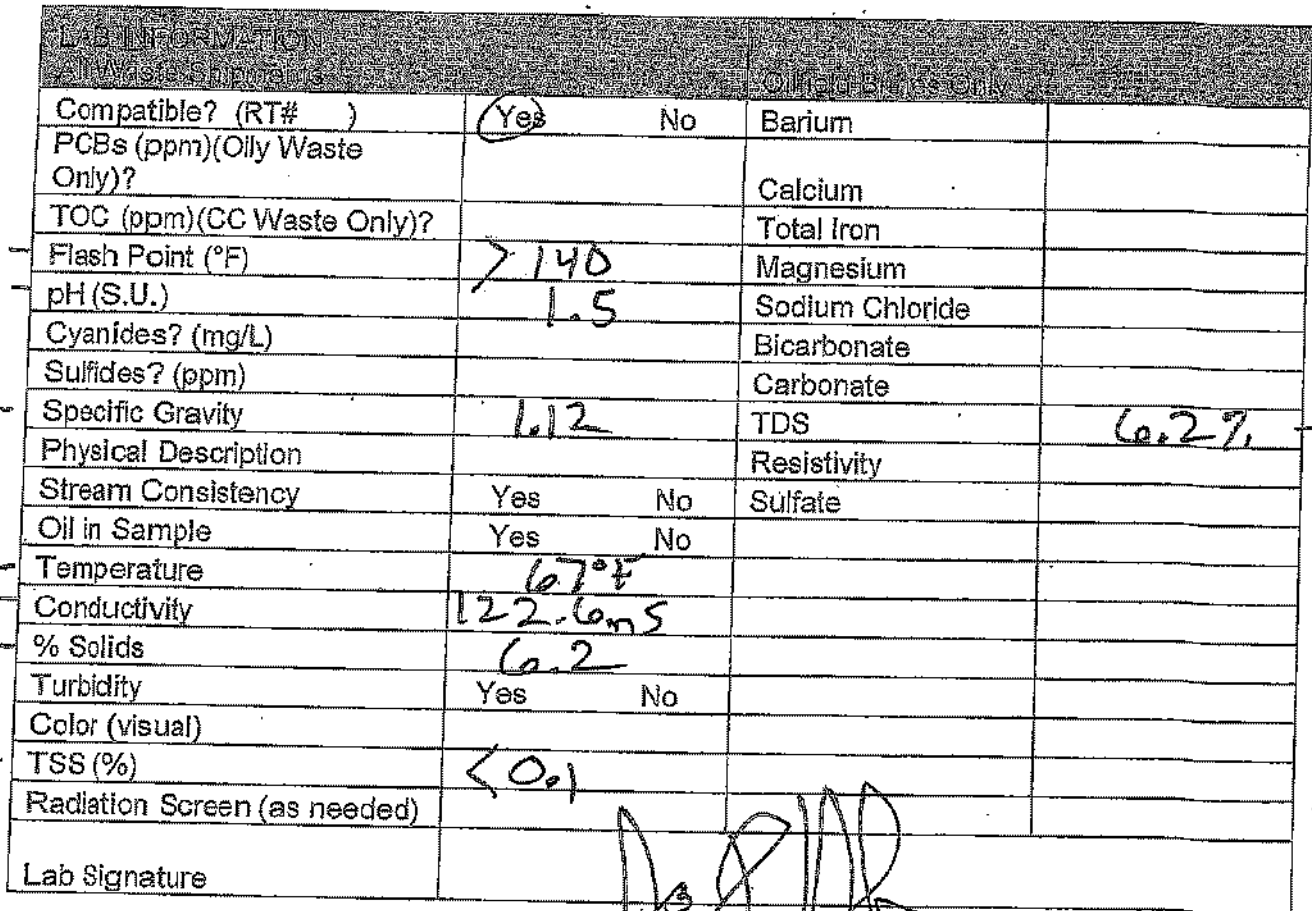 LAB INFORMATION
All Waste Shipments Oilfield Brines Only
Compatible? (RT# ) Yes No Barium
PCBs (ppm)(Oily Waste
Only)? Calcium
TOC (ppm)(CC Waste Only)? Total Iron
Flash Point (°F) > 140 Magnesium
pH (S.U.) 1.5 Sodium Chloride
Cyanides? (mg/L) Bicarbonate
Sulfides? (ppm) Carbonate
Specific Gravity 1.12 TDS 6.2%
Physical Description Resistivity
Stream Consistency Yes No Sulfate
Oil in Sample Yes No
Temperature 67°F
Conductivity 122.6mS
% Solids 6.2
Turbidity Yes No
Color (visual)
TSS (%) <0.1
Radiation Screen (as needed)
Lab Signature